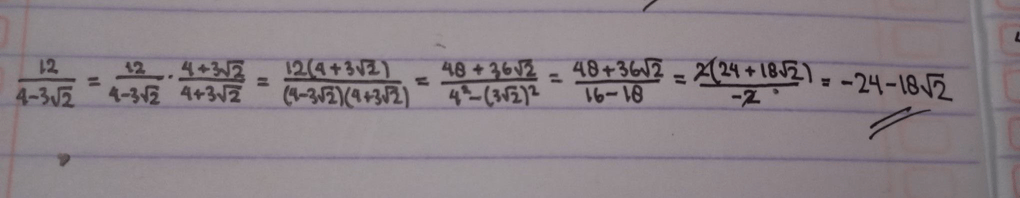 12/(4-3√2) = 12/(4-3√2) · (4+3√2)/(4+3√2) = 12(4+3√2)/((4-3√2)(4+3√2)) = (48+36√2)/(4²-(3√2)²) = (48+36√2)/(16-18) = 2(24+18√2)/-2 = -24-18√2